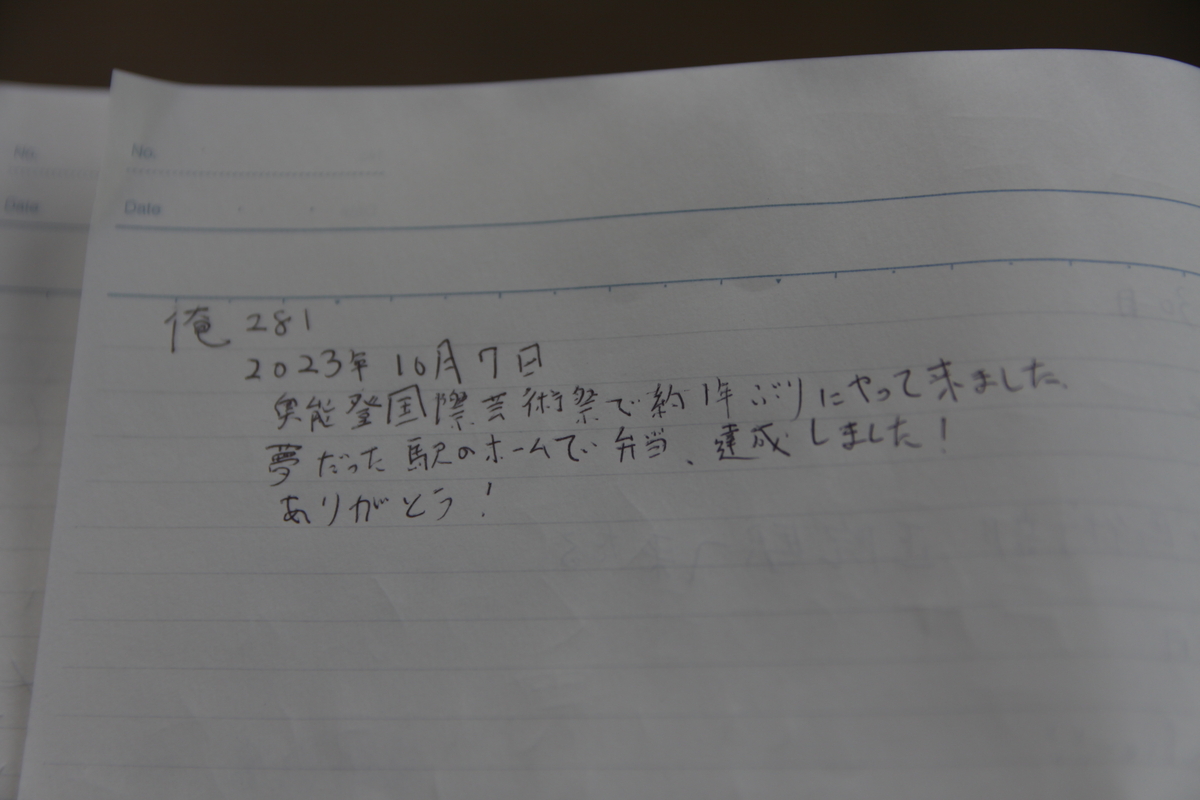 No.
No.
Date
Date
俺 281
2023年 10月 7日
奥能登国際芸術祭で約1年ぶりにやって来ました。
夢だった駅のホームで弁当、達成しました!
ありがとう!